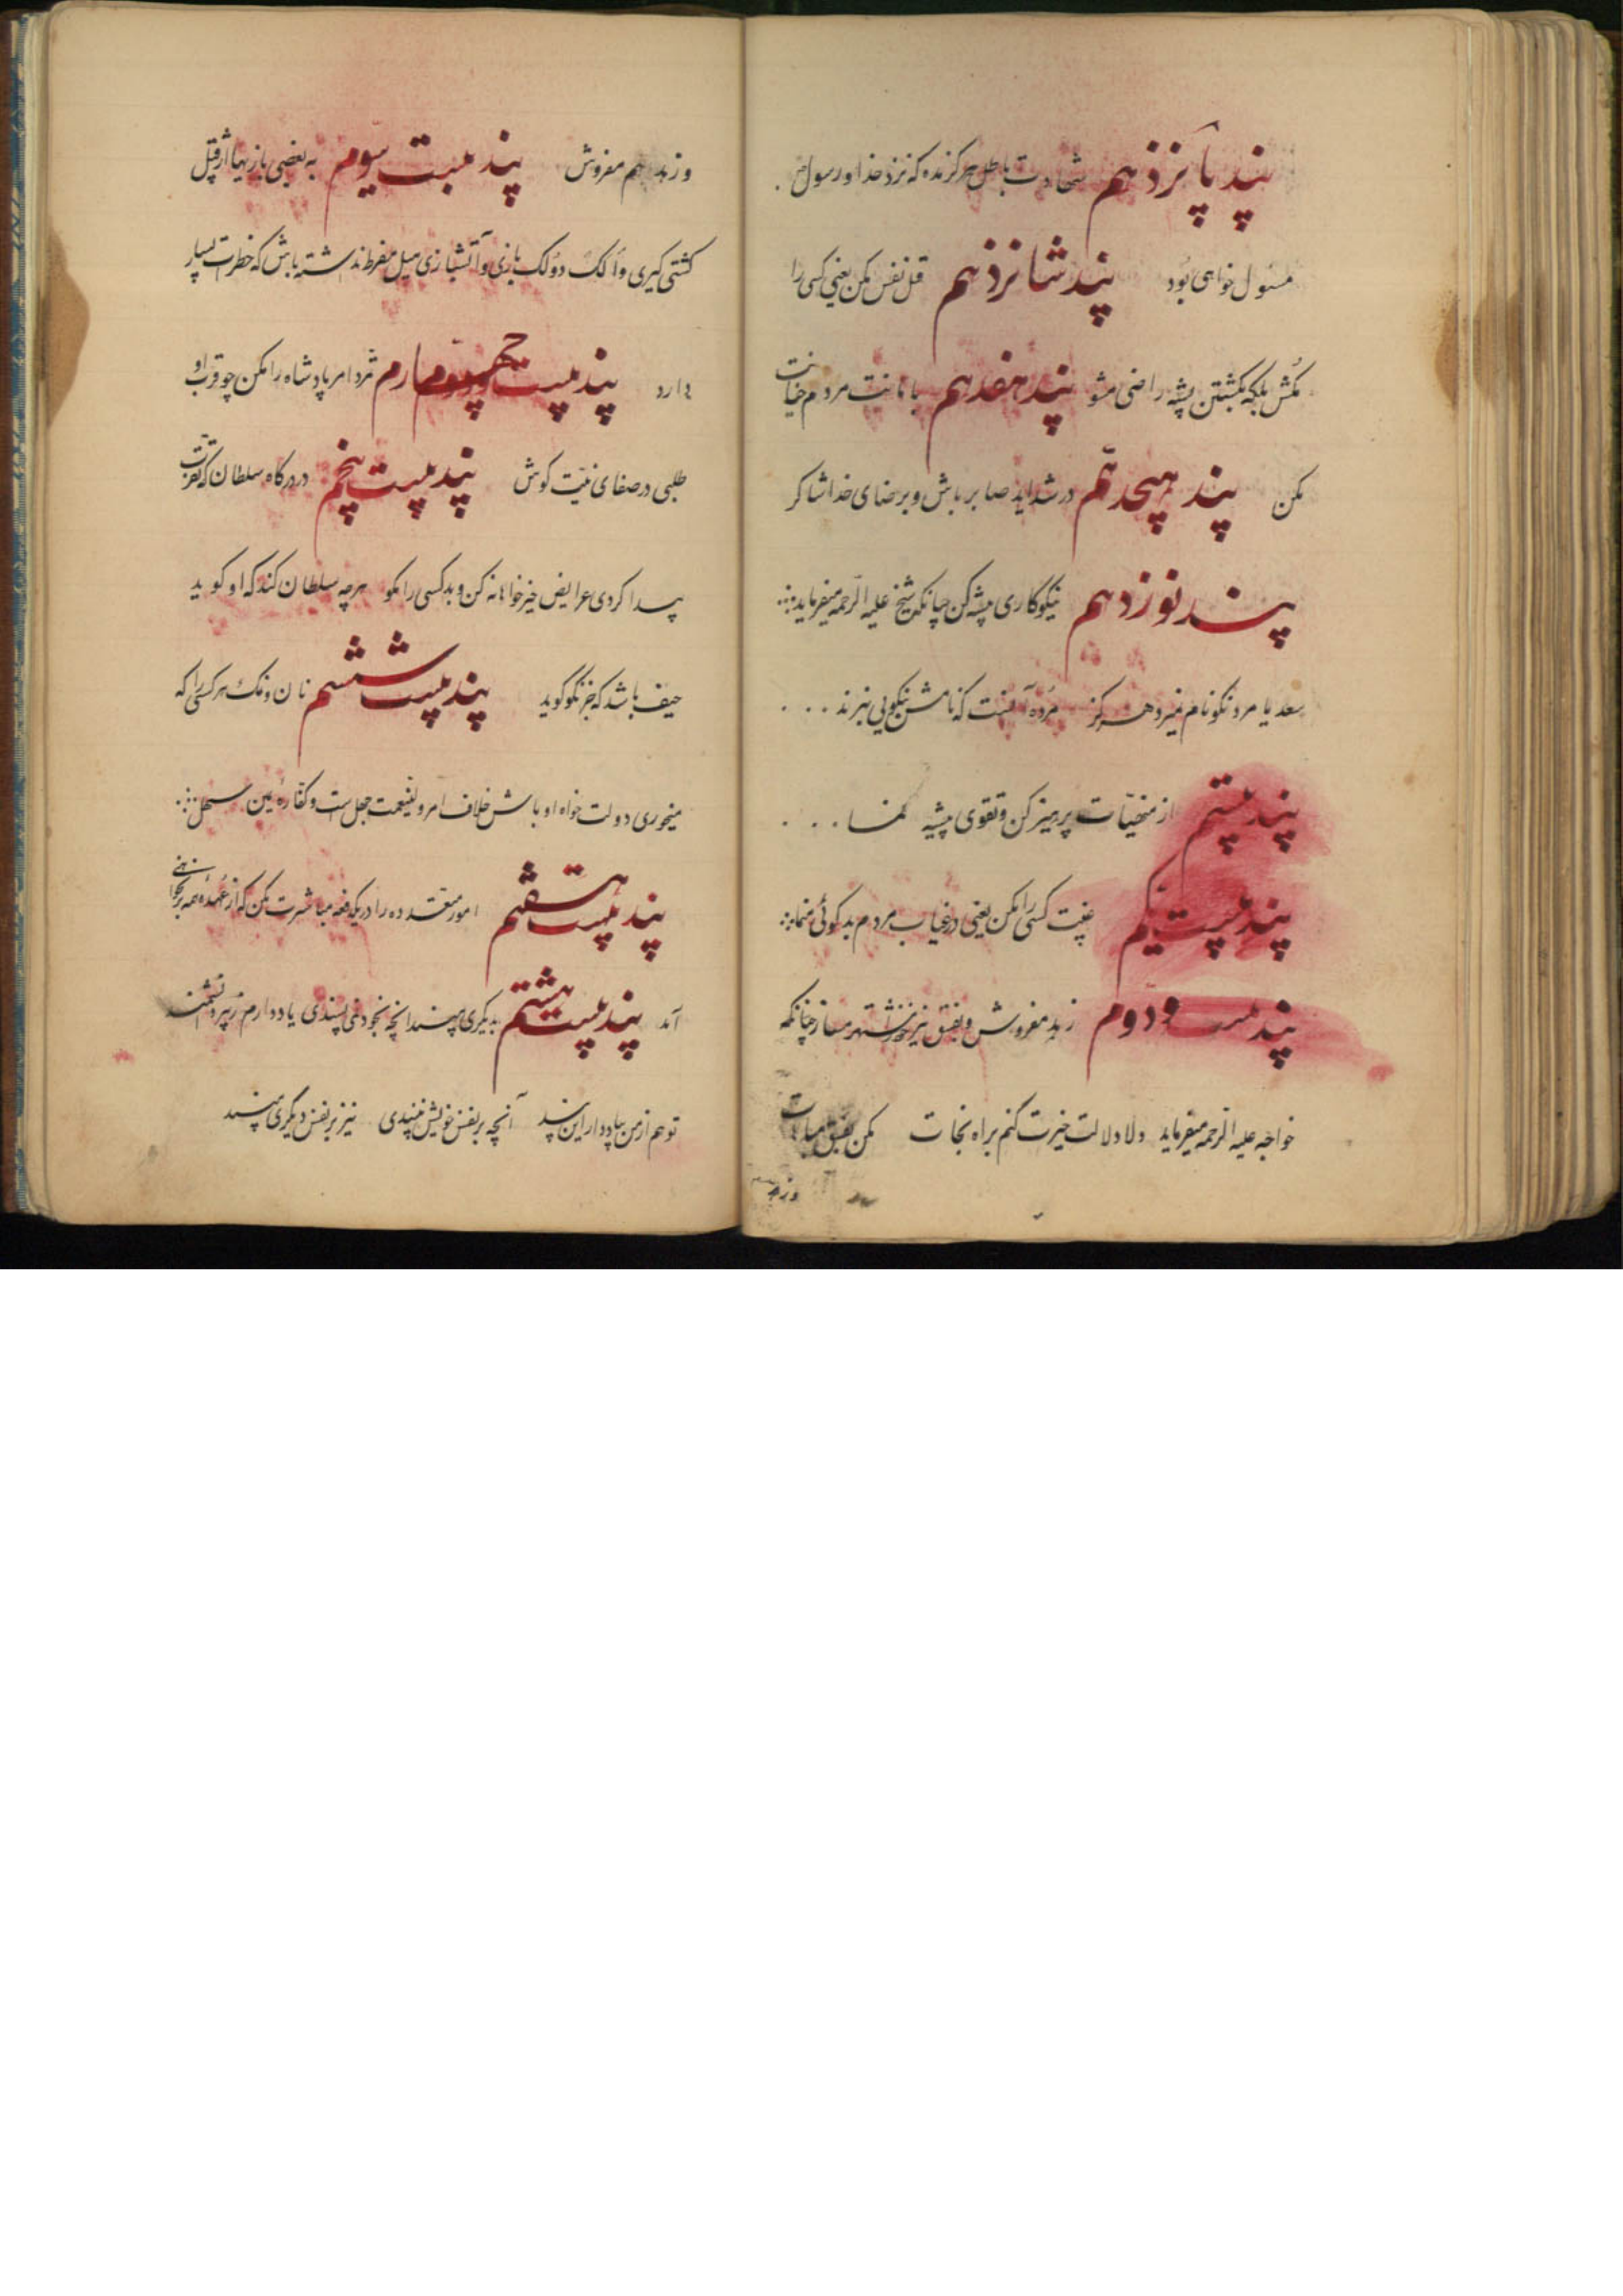 پند پانزدهم شهادت باطل هرگز مده که نزد خدا و رسول
مسئول خواهی بود پند شانزدهم قتل نفس مکن یعنی کسی را
مکش بلکه بکشتن پشه راضی مشو پند هفدهم با مانت مردم خیانت
مکن پند هیجدهم در شداید صابر باش و بر رضای خدا شاکر
پند نوزدهم نیکوکاری پیشه کن چنانکه شیخ علیه الرحمه میفرماید
سعدیا مرد نکونام نمیرد هرگز مرده آنست که نامش بنکویی نبرند
پند بیستم از منهیات پرهیز کن و تقوی پیشه نما
پند بیست یکم غیبت کسی را مکن یعنی در غیاب مردم بدگوئی منما
پند بیست و دوم زهد مفروش و بفسق نیز خود را مشتهر مساز چنانکه
خواجه علیه الرحمه میفرماید دلا دلالت خیرت کنم براه نجات مکن بفسق مباهات
وزهد
و زهد هم مفروش پند بیست سیوم به بعضی بازیها از قبیل
کشتی گیری و الک دولک بازی و آتشبازی میل مفرط نداشته باش که خطرات بسیار
دارد پند بیست چهارم تمرد امر پادشاه را مکن چو قرب او
طلبی در صفای نیت کوش پند بیست پنجم در درگاه سلطان که تقرب
پیدا کردی عرایض خیرخواهانه کن و بد کسی را مگو هرچه سلطان کند که او گوید
حیف باشد که جز نکو گوید پند بیست ششم نان و نمک هر کسی را که
میخوری دولت خواه او باش خلاف امر ولینعمت جهل است و کفاره یمین سهل
پند بیست هفتم امور متعدده را در یکدفعه مباشرت مکن که از عهده همه برنمی
آید پند بیست هشتم بدیگری مپسند آنچه بخود نمی پسندی یاد دارم ز پیر دانشمند
تو هم از من بیاد دار این پند آنچه بر نفس خویش نپسندی نیز بر نفس دیگری مپسند